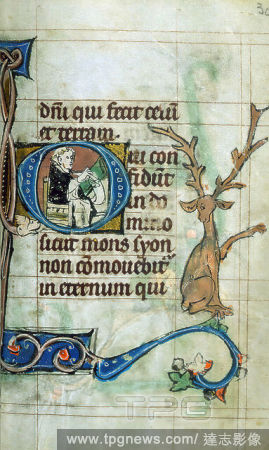 dñi qui fecit celū
et terram.
Qui con
fidūt
in do
mino
sicut mons syon
non cōmouebit
in eternum qui
TPG
www.tpgnews.com / 達志影像